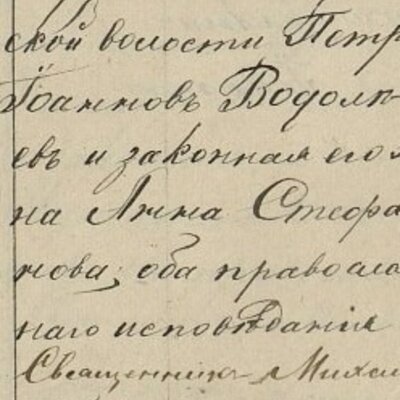 ской волости Петр
Іоанновъ Водоль-
евъ и законная его ж
на Анна Стефа
нова, оба правосла
наго исповѣданія
Священникъ Михаи